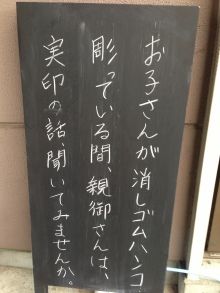 お子さんが消しゴムハンコ
彫っている間、親御さんは、
実印の話、聞いてみませんか。